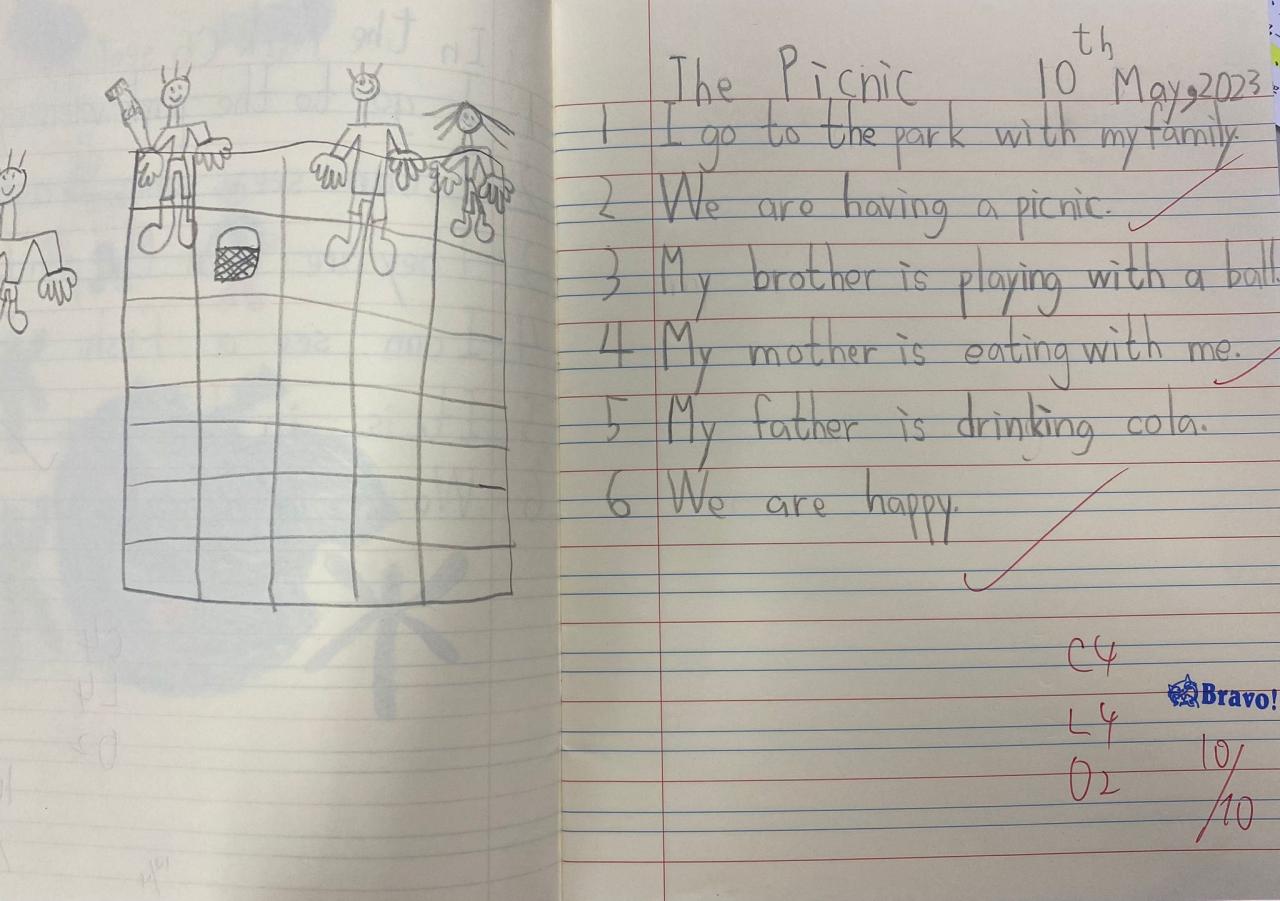 The Picnic 10th May, 2023
1 I go to the park with my family.
2 We are having a picnic.
3 My brother is playing with a ball.
4 My mother is eating with me.
5 My father is drinking cola.
6 We are happy.
C4
L4
O2
Bravo!
10/10